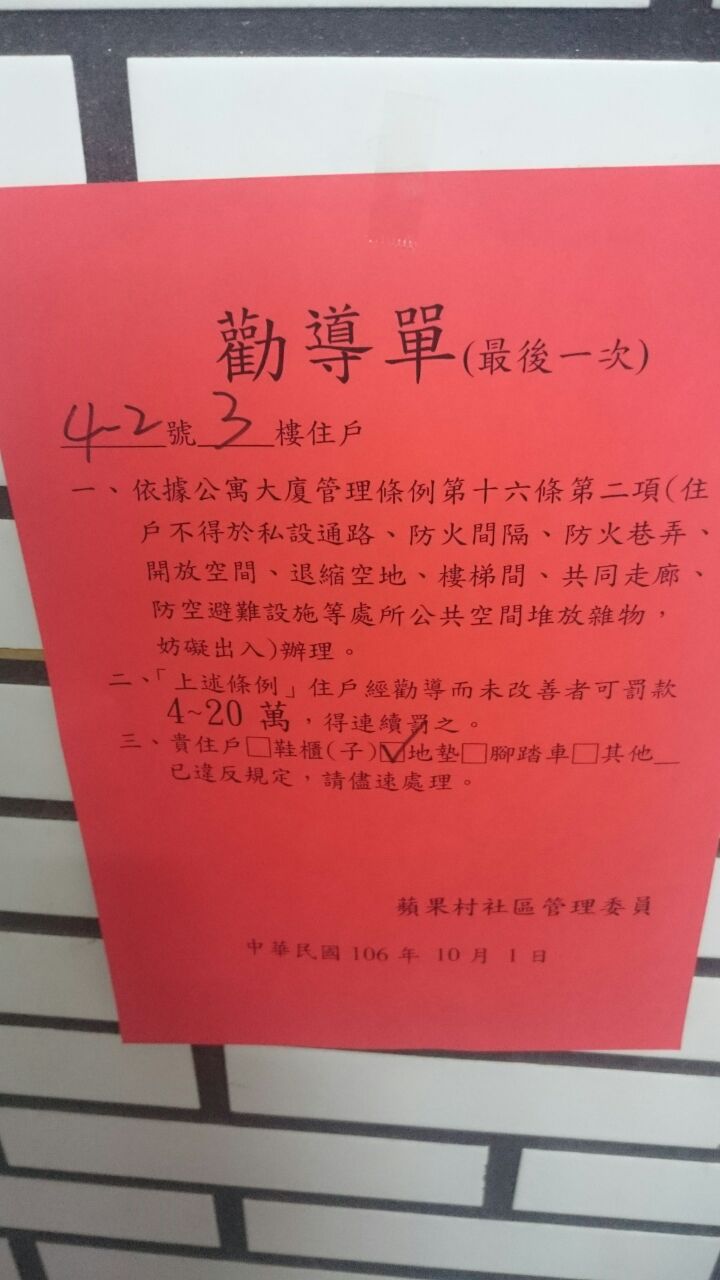 勸導單(最後一次)
4-2號 3 樓住戶
一、依據公寓大廈管理條例第十六條第二項(住
戶不得於私設通路、防火間隔、防火巷弄、
開放空間、退縮空地、樓梯間、共同走廊、
防空避難設施等處所公共空間堆放雜物，
妨礙出入)辦理。
二、「上述條例」住戶經勸導而未改善者可罰款
4~20 萬，得連續罰之。
三、貴住戶□鞋櫃(子)☑地墊□腳踏車□其他__
已違反規定，請儘速處理。
蘋果村社區管理委員
中華民國 106 年 10 月 1 日